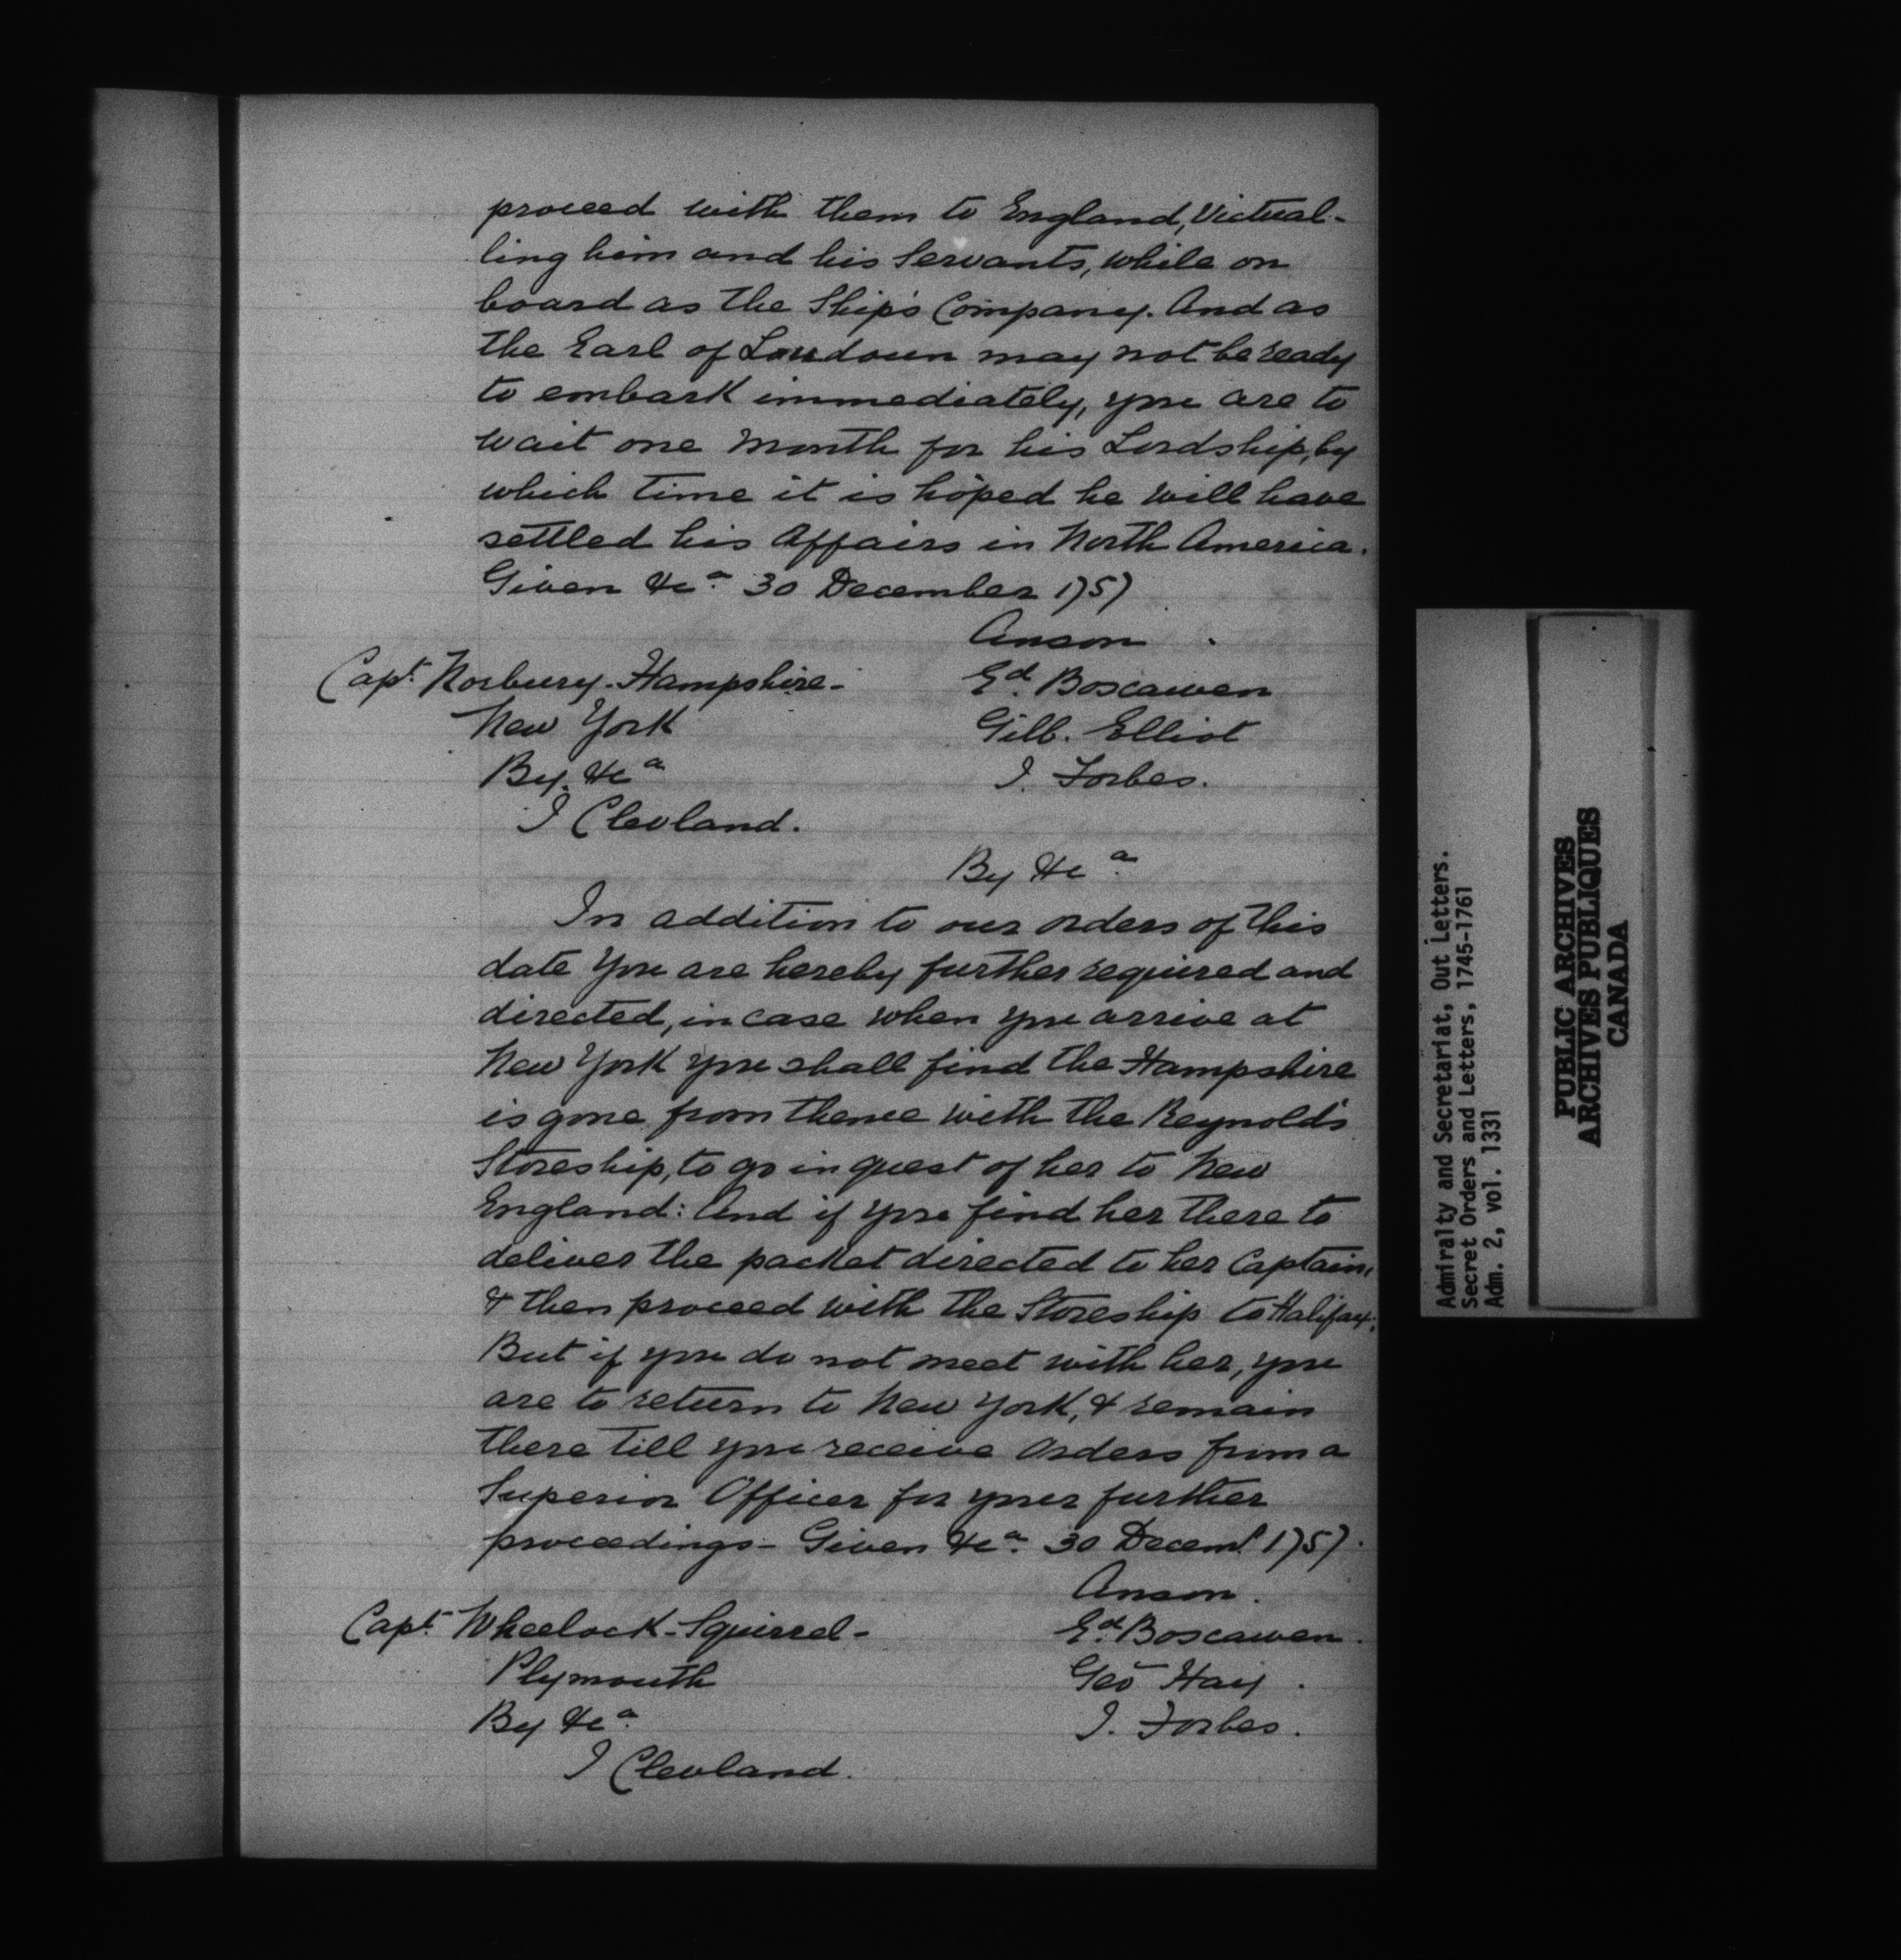 proceed with them to England, Victual-
ling him and his Servants, while on
board as the Ship's Company. And as
the Earl of Loudoun may not be ready
to embark immediately, you are to
wait one Month for his Lordship, by
which time it is hoped he will have
settled his Affairs in North America.
Given &c.ª 30 December 1757
Anson
Capt. Norbury - Hampshire -
Ed. Boscawen
New York
Gilb. Elliot
By &cª
J. Forbes.
J Clevland.
By &c.ª
In addition to our orders of this
date you are hereby further required and
directed, in case when you arrive at
New York you shall find the Hampshire
is gone from thence with the Reynolds
Storeship, to go in quest of her to New
England: And if you find her there to
deliver the packet directed to her Captain,
& then proceed with the Storeship to Halifax:
But if you do not meet with her, you
are to return to New York, & remain
there till you receive Orders from a
Superior Officer for your further
proceedings - Given &c.ª 30 Decemr. 1757.
Anson.
Capt. Wheelock - Squirrel -
Ed. Boscawen.
Plymouth
Geo Hay.
By &c.ª
J. Forbes.
J Clevland.
Admiralty and Secretariat, Out Letters.
Secret Orders and Letters, 1745-1761
Adm. 2, vol. 1331
PUBLIC ARCHIVES
ARCHIVES PUBLIQUES
CANADA